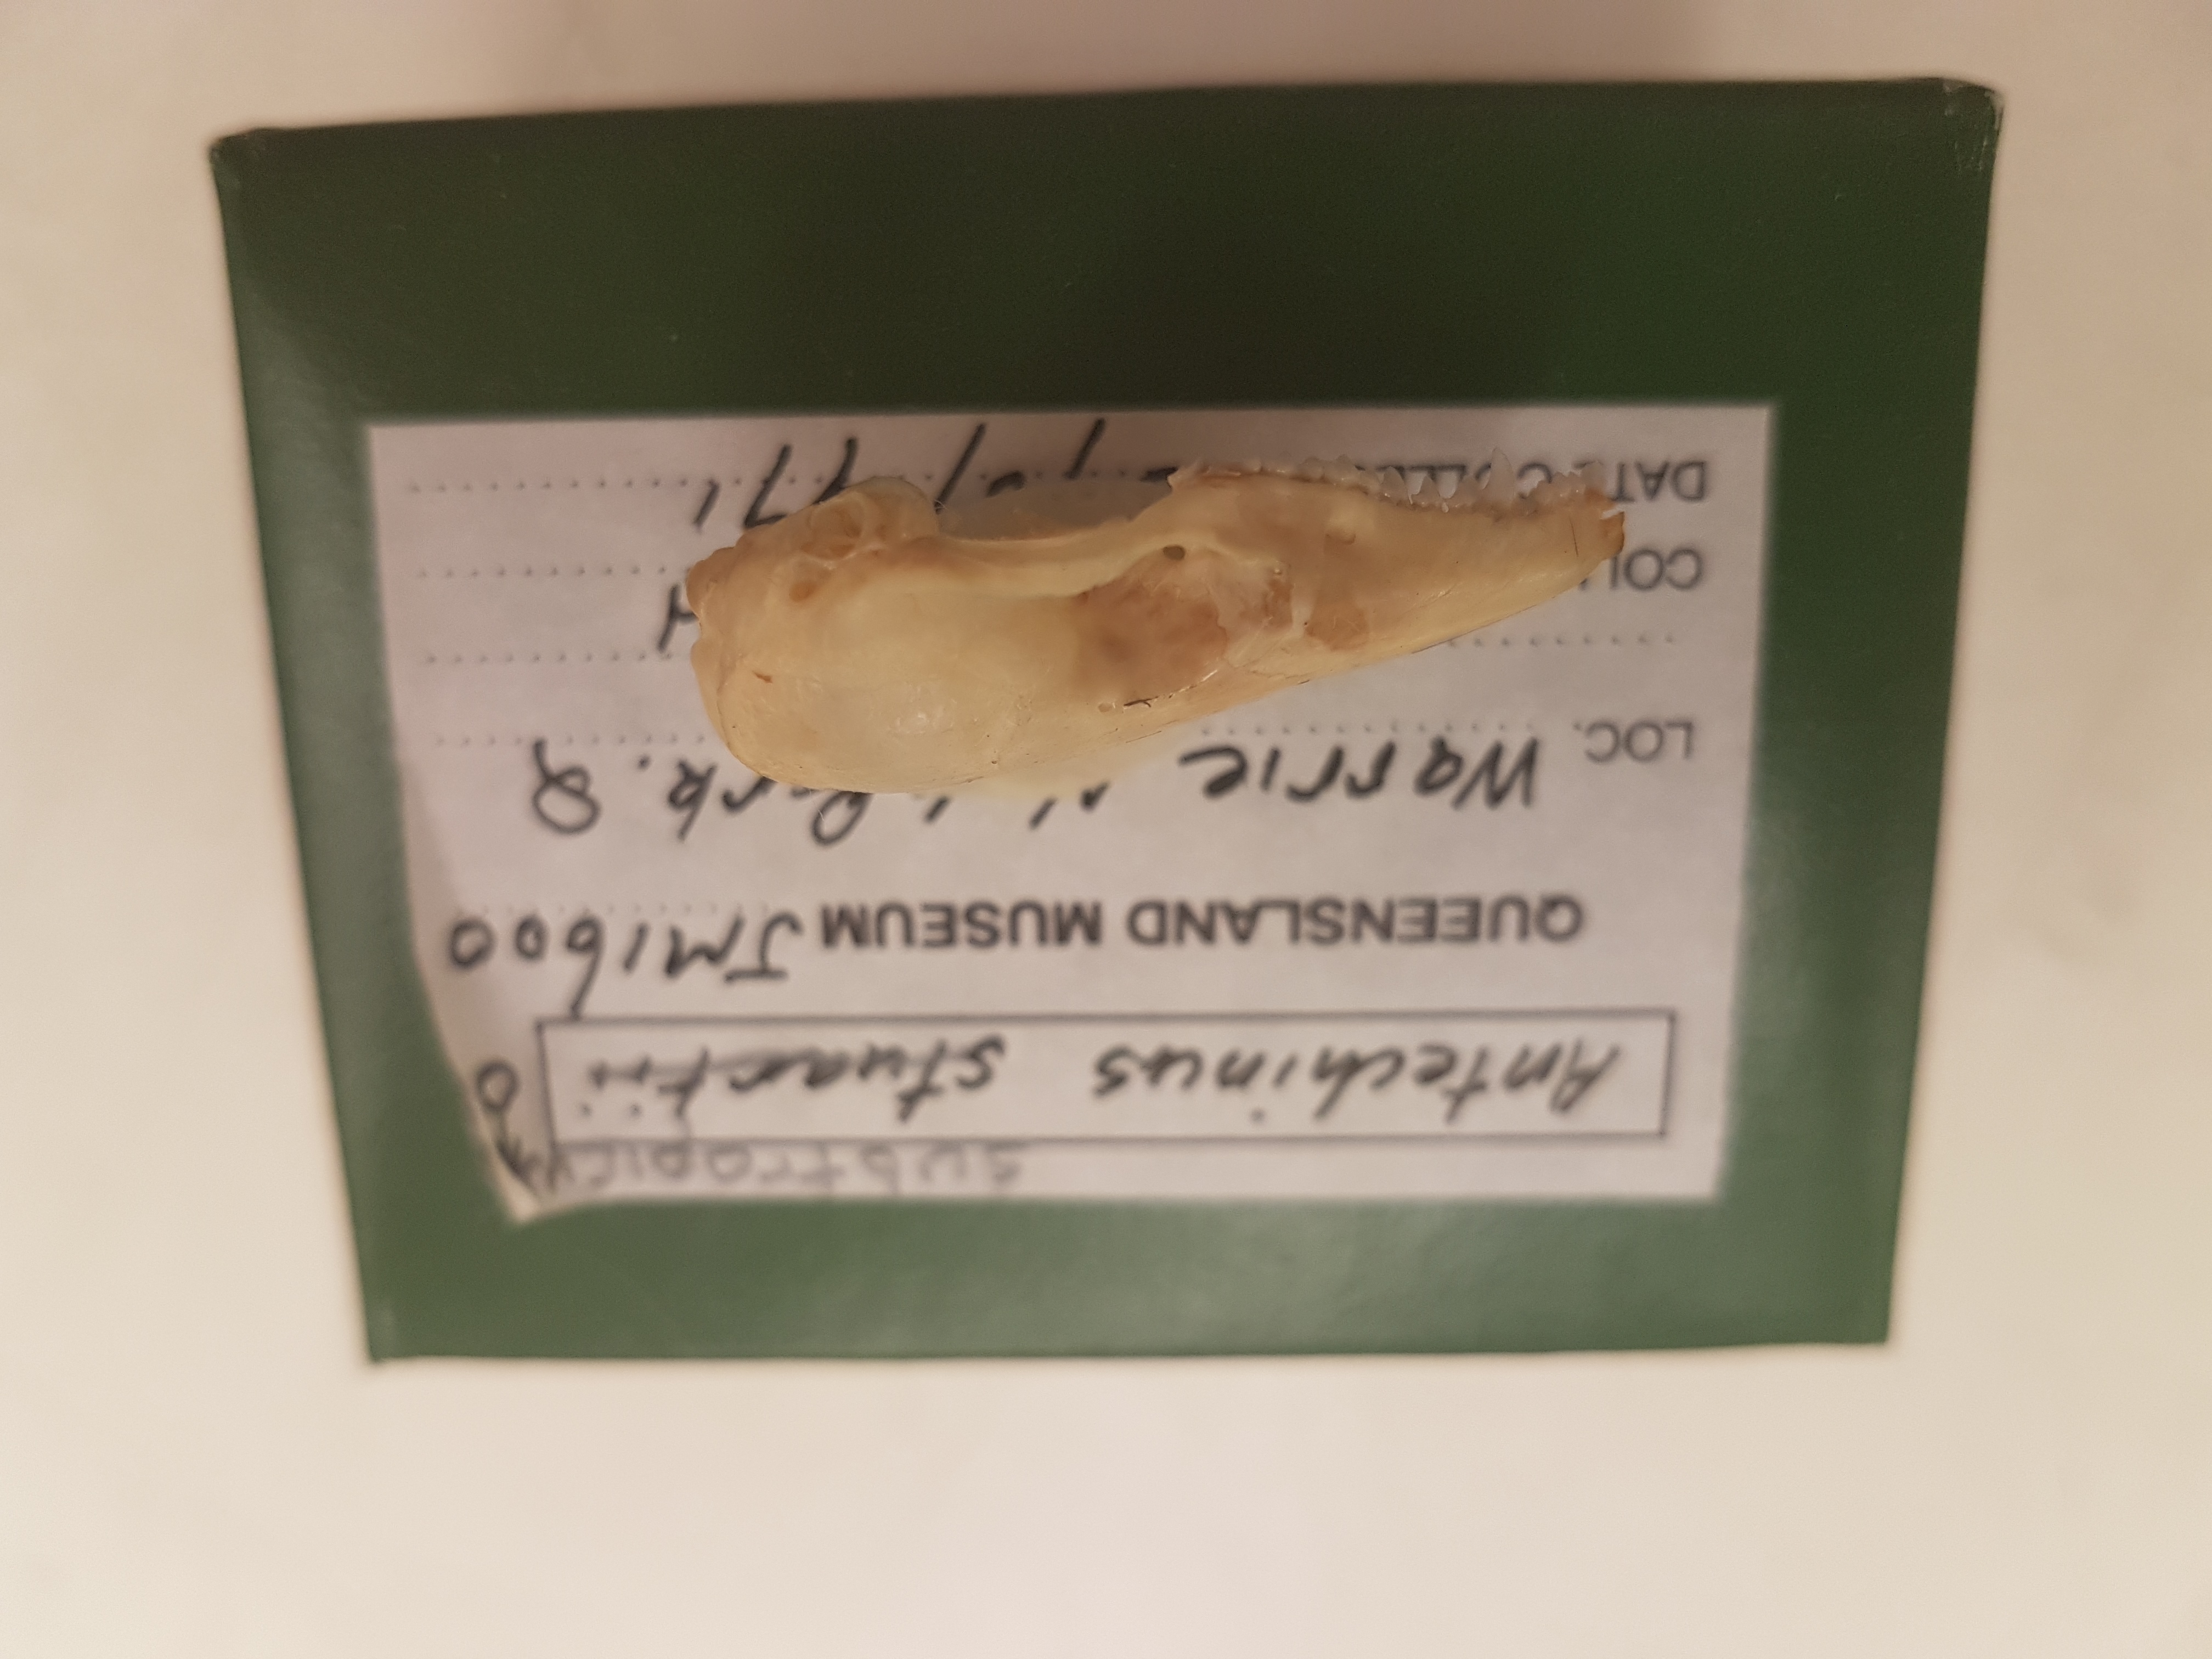 subtropicus
Antechinus stuartii ♂
QUEENSLAND MUSEUM JM1600
LOC. Warrie Park. Q